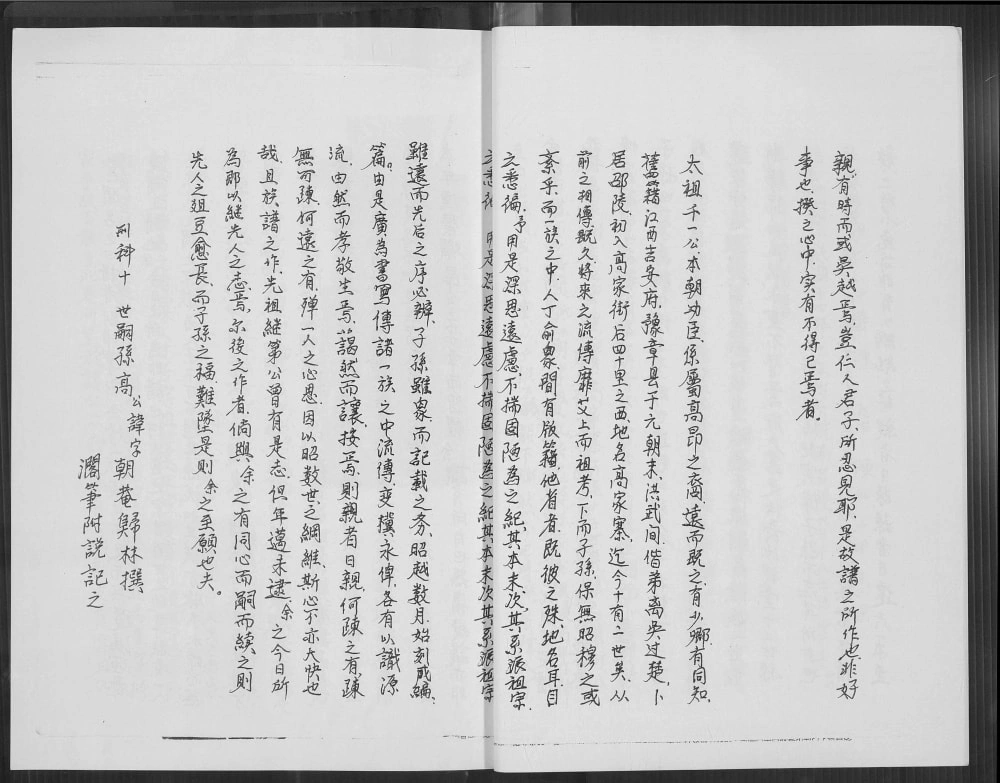 親。有時而或吳越焉。豈仁人君子、所忍見耶。是故譜之所作也。非好
事也。撰之心中。实有不得已焉者。
太祖千一公本朝功臣。係屬高昂之裔。遠而既之。有少卿。有同知。
舊籍江西吉安府。豫章县于元朝末。洪武间。偕弟离吳。过楚。卜
居邵陵。初入高家街后四十里之西地名高家寨。迄今十有二世矣。从
前之相傳既久將來之流傳靡艾上而祖考。下而子孫。保無昭穆之或
紊乎。而一族之中。人丁俞衆。間有散籍。他省者。既彼之殊。地名耳目
之悉徧。予用是深思遠慮。不揣固陋為之紀其本末次其系派祖字
之悉徧 用是深思遠慮不揣固陋為之紀其本末次其系派祖字
雖遠而先后之序必辨。子孫雖衆而記載之务。昭越数月。始刻成編。
篇。由是廣為書寫傳諸一族之中流傳。变撗永俾。各有以識源
流。由然而孝敬生焉。藹然而讓接焉。則親者日親。何疎之有。疎
無可疎。何遠之有。殫一人之心思。因以昭数世之綱維。斯心不亦大快也
哉。且族譜之作。先祖继第公曾有是志。但年邁未逮。余之今日所
為那以継先人之志焉。尔後之作者。倘與余之有同心而嗣而續之則
先人之俎豆愈長。而子孫之福。難墜是則余之至願也夫。
刑科十 世嗣孫高公諱字朝菴歸林撰
濡筆附說記之